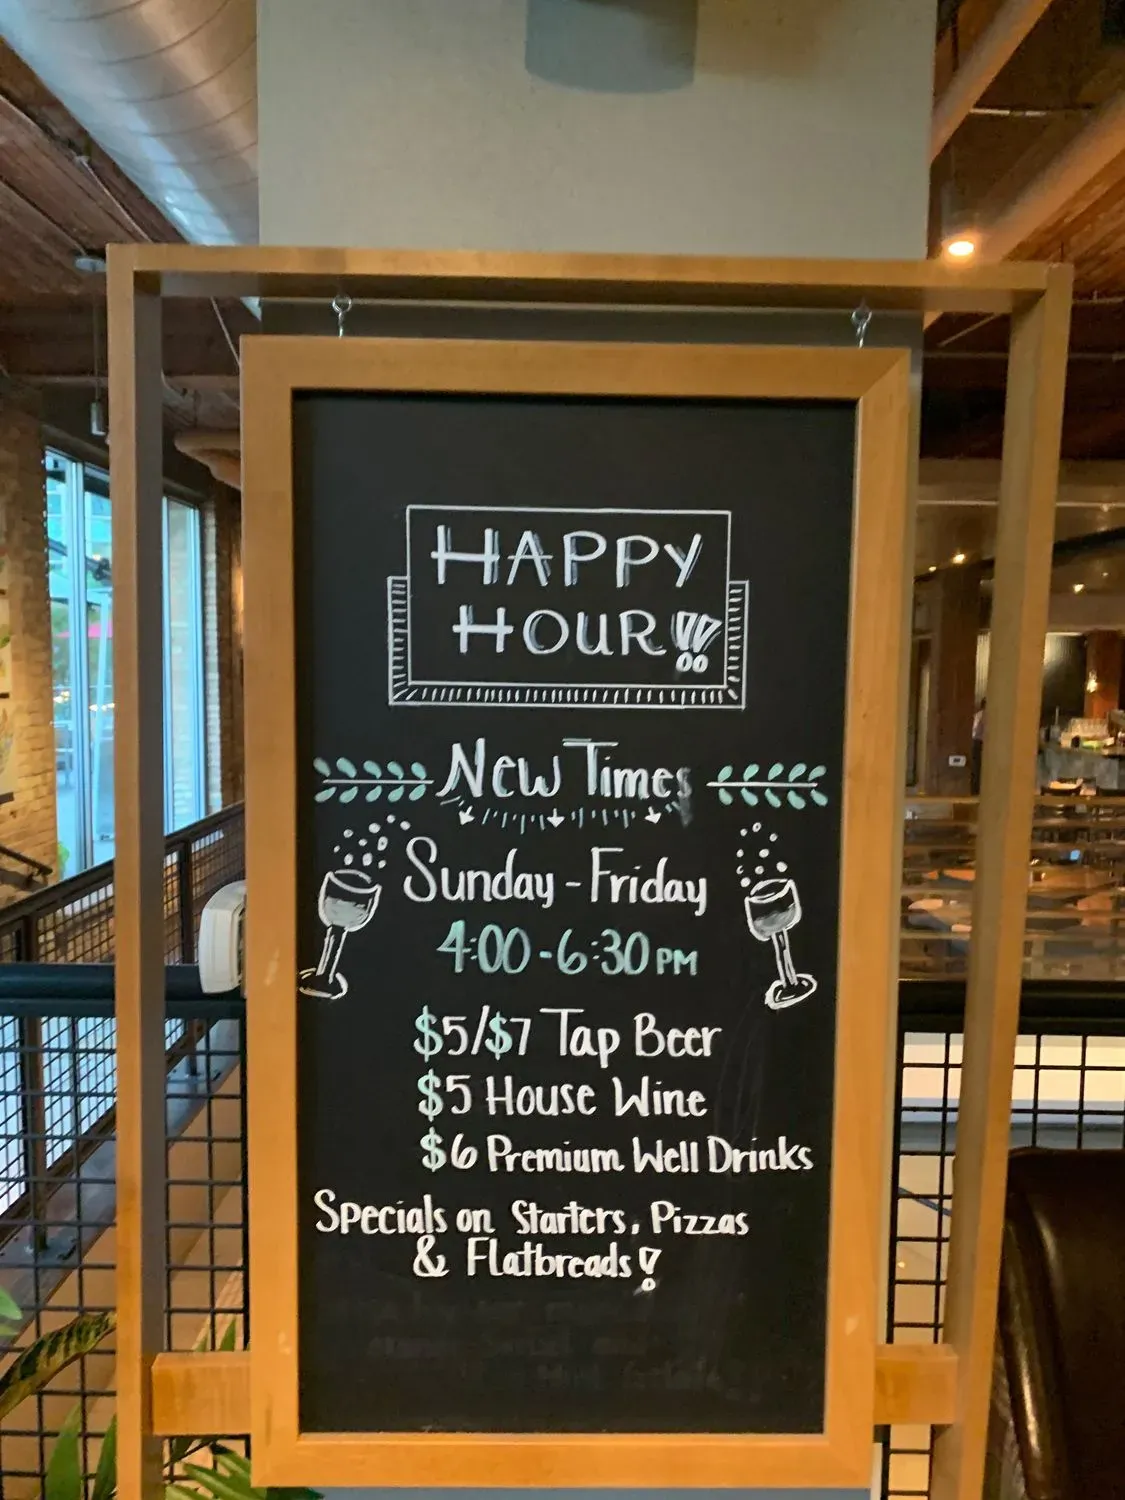 HAPPY
HOUR!!
New Times
Sunday - Friday
4:00 - 6:30 PM
$5/$7 Tap Beer
$5 House Wine
$6 Premium Well Drinks
Specials on Starters, Pizzas
& Flatbreads!